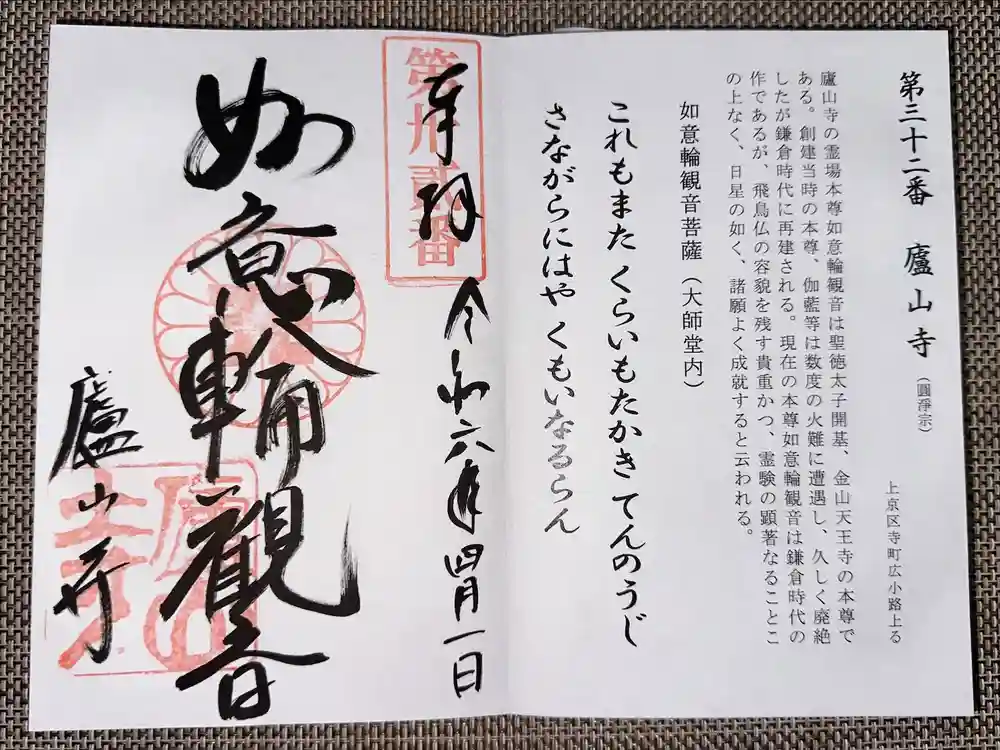 第三十二番 廬山寺（圓淨宗）
上京区寺町広小路上る
廬山寺の霊場本尊如意輪観音は聖徳太子開基、金山天王寺の本尊で
ある。創建当時の本尊、伽藍等は数度の火難に遭遇し、久しく廃絶
したが鎌倉時代に再建される。現在の本尊如意輪観音は鎌倉時代の
作であるが、飛鳥仏の容貌を残す貴重かつ、霊験の顕著なることこ
の上なく、日星の如く、諸願よく成就すると云われる。
如意輪観音菩薩（大師堂内）
これもまた くらいもたかき てんのうじ
さながらにはや くもいなるらん
第卅貳番
奉拝 令和六年四月一日
如意輪観音
廬山寺
廬山寺